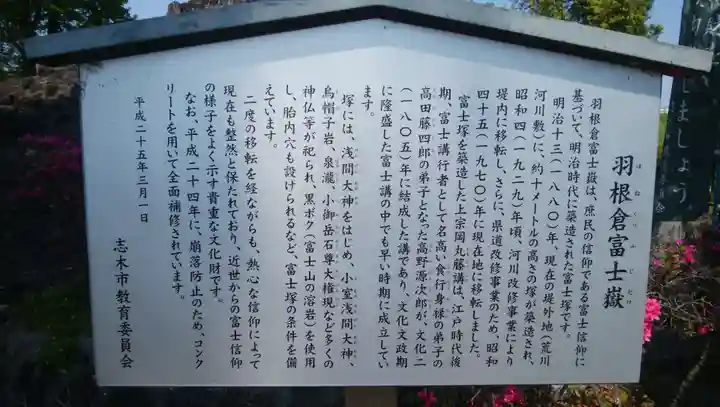 羽根倉富士嶽
はねくらふじだけ
羽根倉富士嶽は、庶民の信仰である富士信仰に
基づいて、明治時代に築造された富士塚です。
明治十三(一八八〇)年、現在の堤外地(荒川
河川敷)に、約十メートルの高さの塚が築造され、
昭和四(一九二九)年頃、河川改修事業により
堤内に移転し、さらに、県道改修事業のため、昭和
四十五(一九七〇)年に現在地に移転しました。
富士塚を築造した上宗岡丸藤講は、江戸時代後
期、富士講行者として名高い食行身禄の弟子の
高田藤四郎の弟子となった高野源次郎が、文化二
(一八〇五)年に結成した講であり、文化文政期
に隆盛した富士講の中でも早い時期に成立してい
ます。
塚には、浅間大神をはじめ、小室浅間大神、
烏帽子岩、泉瀧、小御岳石尊大権現など多くの
神仏等が祀られ、黒ボク(富士山の溶岩)を使用
し、胎内穴も設けられるなど、富士塚の条件を備
えています。
二度の移転を経ながらも、熱心な信仰によって
現在も整然と保たれており、近世からの富士信仰
の様子をよく示す貴重な文化財です。
なお、平成二十四年に、崩落防止のため、コンク
リートを用いて全面補修されています。
平成二十五年三月一日
志木市教育委員会
しましょう。